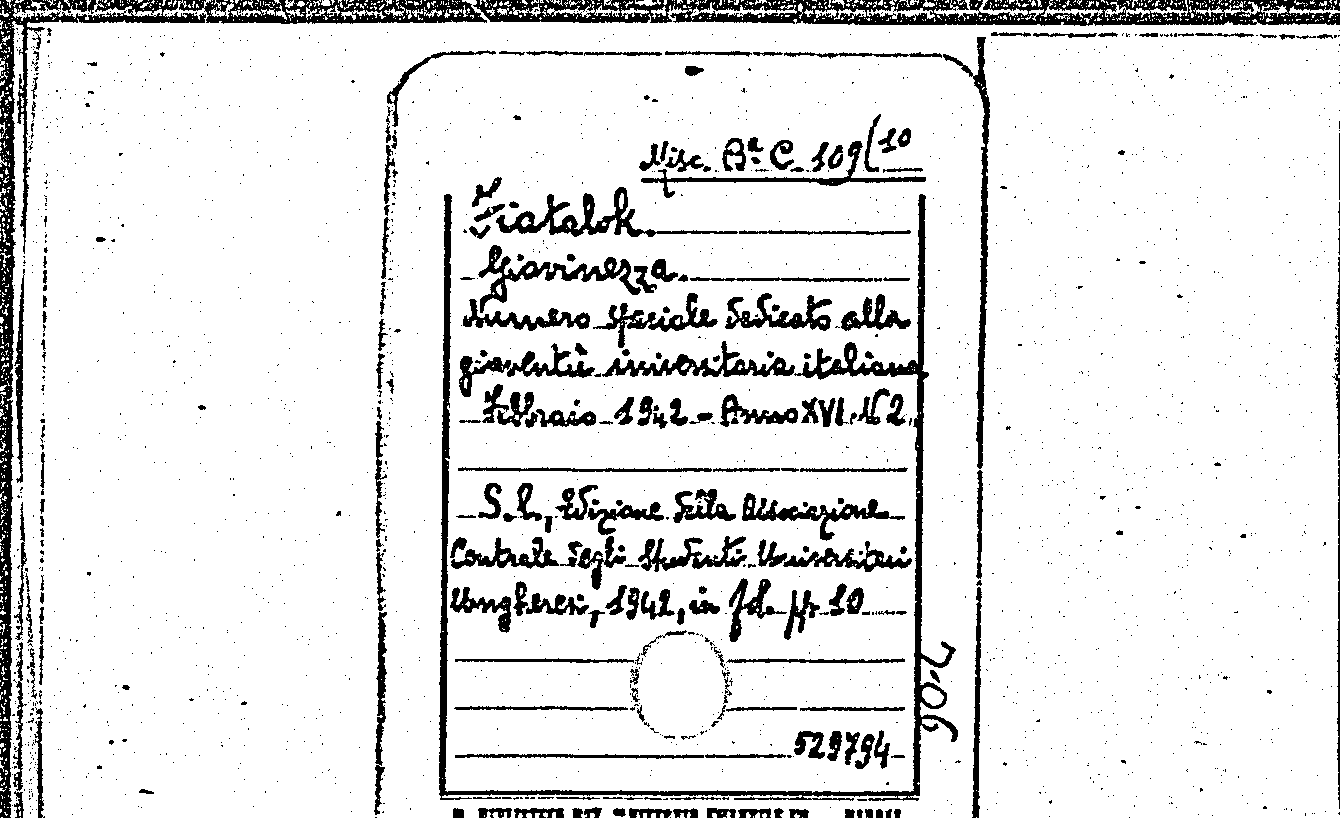 Misc. Bª C 109/10
Fiatalok.
Giovinezza.
Numero speciale dedicato alla
gioventù universitaria italiana
Febbraio 1942 - Anno XVI. N 2.
S. l., Edizione della Associazione
Centrale degli Studenti Universitari
Ungheresi, 1942, in fol. pp 10
206
529794